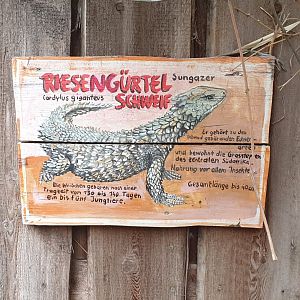 RIESENGÜRTEL
Sungazer
Cordylus giganteus
SCHWEIF
Er gehört zu den
lebend gebärenden Echsen
und bewohnt die Grassteppen
des zentralen Südafrika
Nahrung vor allem Insekten
Die Weibchen gebären nach einer
Tragzeit von 130 bis 140 Tagen
ein bis fünf Jungtiere.
Gesamtlänge bis 40cm